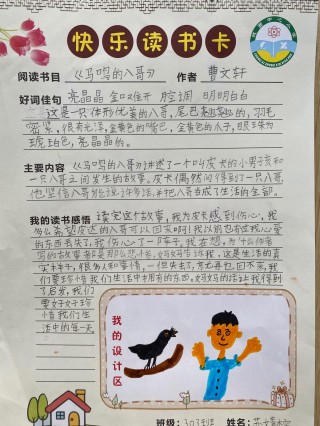 快乐读书卡
阅读书目 《马鸣的八哥》 作者 曹文轩
好词佳句 亮晶晶 金口难开 腔调 明明白白
这是一只体形优美的八哥，尾巴翘翘的，羽毛
密实，很有光泽，金黄色的嘴巴，金黄色的爪子，眼珠为
琥珀色，亮晶晶的。
主要内容 《马鸣的八哥》讲述了一个叫皮卡的小男孩和
一只八哥之间发生的故事。皮卡偶然间得到了一只八哥，
他坚信八哥能说许多话，并把八哥当成了生活的全部。
我的读书感悟 读完这个故事，我为皮卡感到伤心，我
多么希望皮卡的八哥可以回来啊！我以前也有过我心爱
的东西丢失了，我伤心了一阵子，我在想，为什么作者
写的故事都是那么悲惨，妈妈告诉我，这是生活的真
实样子，很多人和事情，一但失去了，就不再也回不来，我
们要珍惜我们生活中拥有的东西，妈妈的话让我得到
了启发，我们
要好好珍
惜我们生
活中的每一天。
我的设计区
班级： 303班 姓名：